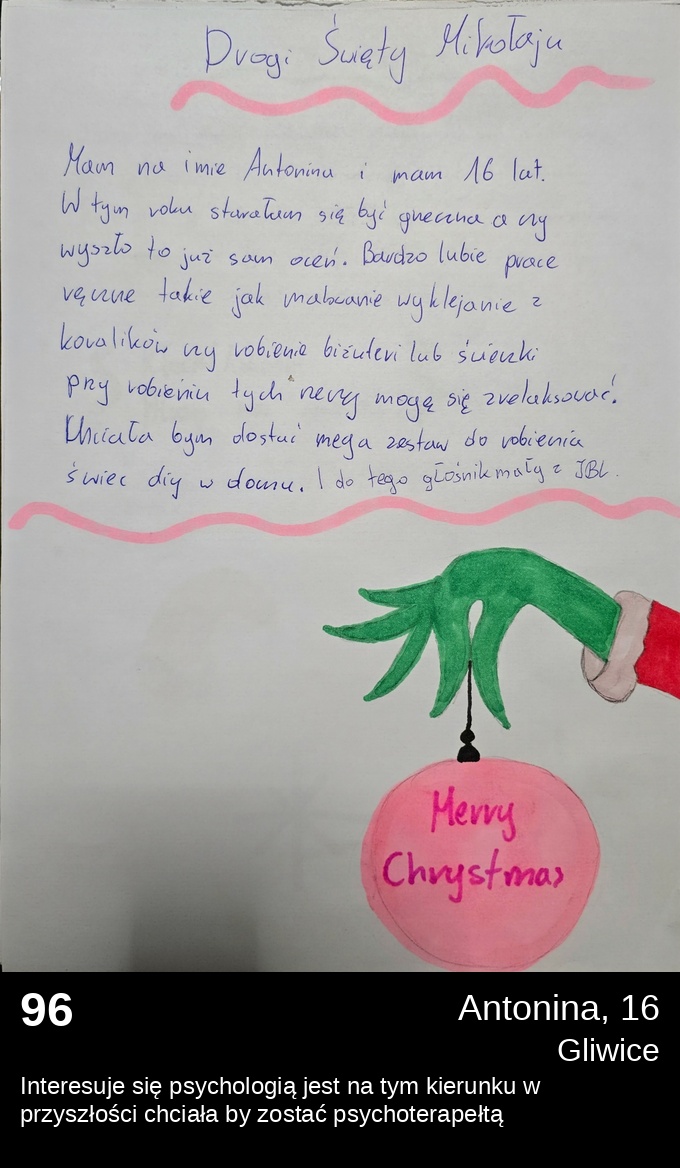 Drogi Święty Mikołaju
Mam na imie Antonina i mam 16 lat.
W tym roku starałam się być grzeczna a czy
wyszło to już sam oceń. Bardzo lubie prace
ręczne takie jak malowanie wyklejanie z
koralików czy robienie biżuteri lub świeczki
przy robieniu tych rzeczy mogą się zrelaksować.
Chciała bym dostać mega zestaw do robienia
świec diy w domu. I do tego głośnik mały z JBL.
Merry
Chrystmas
96
Antonina, 16
Gliwice
Interesuje się psychologią jest na tym kierunku w
przyszłości chciała by zostać psychoterapełtą